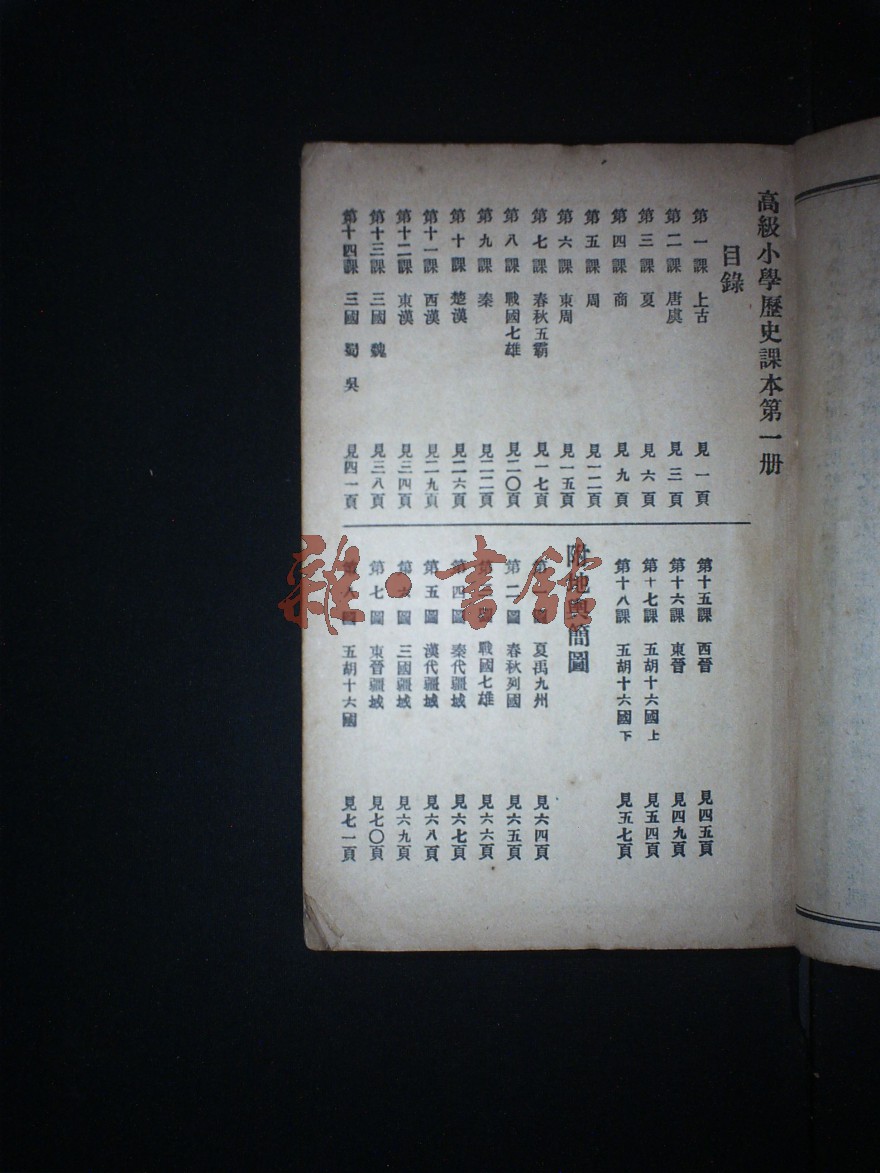 高級小學歷史課本第一册
目錄
第一課 上古 見一頁
第二課 唐虞 見三頁
第三課 夏 見六頁
第四課 商 見九頁
第五課 周 見一二頁
第六課 東周 見一五頁
第七課 春秋五霸 見一七頁
第八課 戰國七雄 見二〇頁
第九課 秦 見二二頁
第十課 楚漢 見二六頁
第十一課 西漢 見二九頁
第十二課 東漢 見三四頁
第十三課 三國 魏 見三八頁
第十四課 三國 蜀 吳 見四一頁
第十五課 西晉 見四五頁
第十六課 東晉 見四九頁
第十七課 五胡十六國上 見五四頁
第十八課 五胡十六國下 見五七頁
附地輿簡圖
第一圖 夏禹九州 見六四頁
第二圖 春秋列國 見六五頁
第三圖 戰國七雄 見六六頁
第四圖 秦代疆域 見六七頁
第五圖 漢代疆域 見六八頁
第六圖 三國疆域 見六九頁
第七圖 東晉疆域 見七〇頁
第八圖 五胡十六國 見七一頁
雜·書館